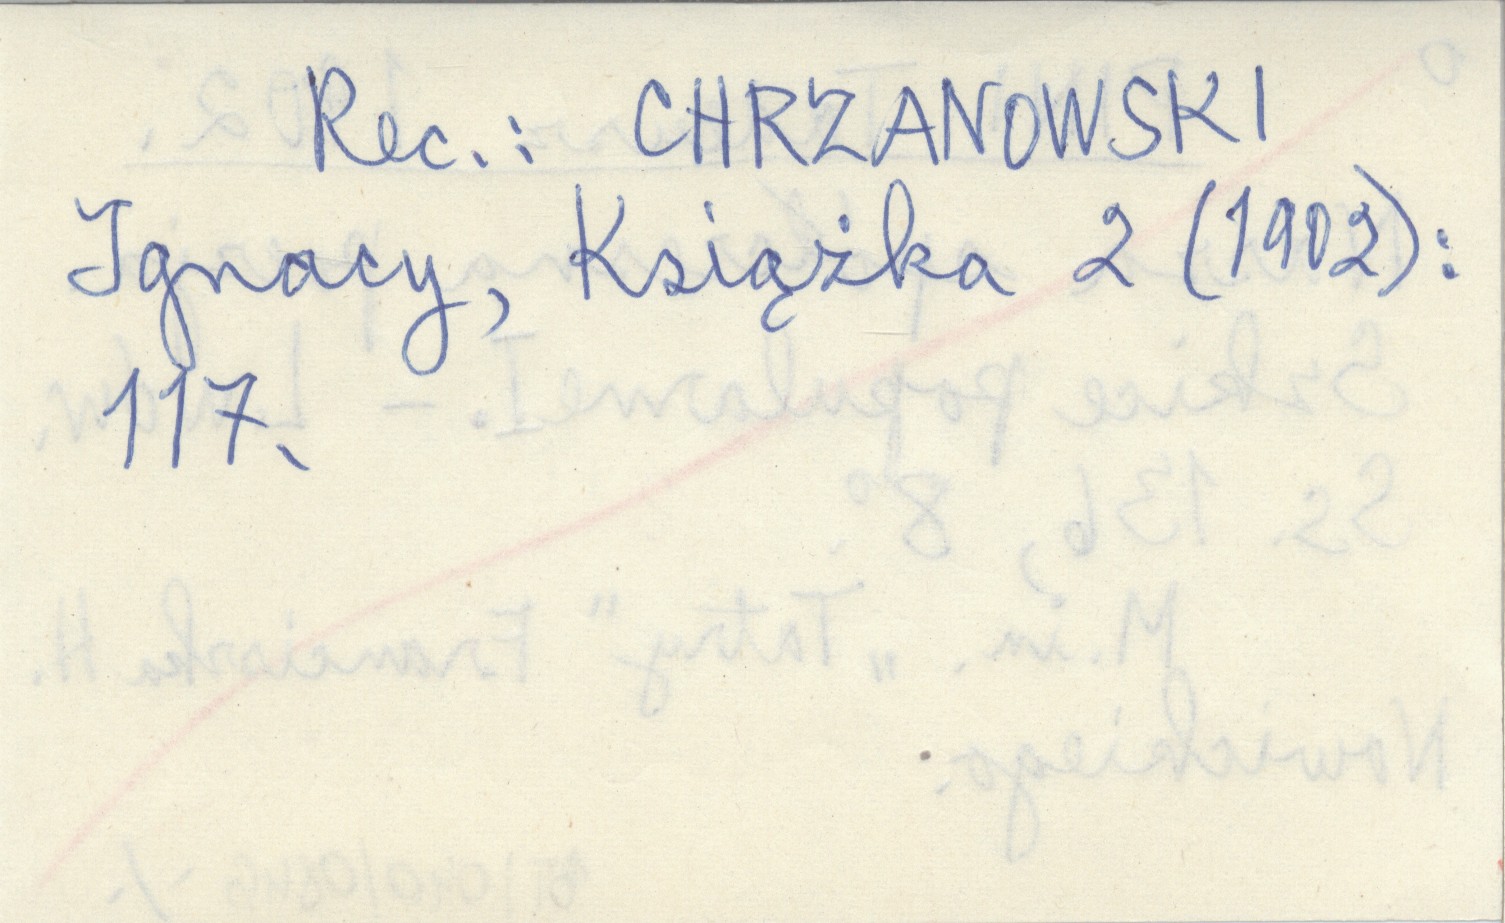 Rec.: CHRZANOWSKI
Ignacy, Książka 2 (1902):
117.